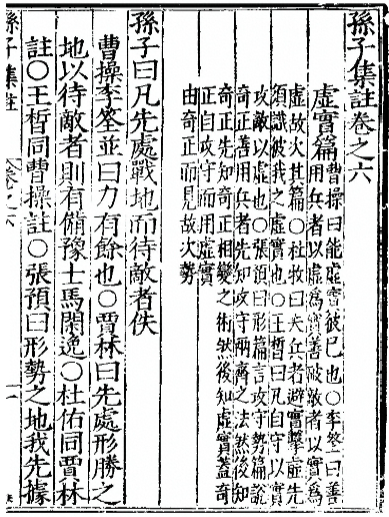 孫子集註卷之六
虛實篇
曹操曰能虛實彼已也○李筌曰善
用兵者以虛爲實善破敵者以實爲
虛故次其篇○杜牧曰夫兵者避實擊虛先
須識彼我之虛實也○王晳曰凡自守以實
攻敵以虛也○張預曰形篇言攻守勢篇說
奇正善用兵者先知攻守兩齊之法然後知
奇正先知奇正相變之術然後知虛實蓋奇
正自攻守而用虛實
由奇正而見故次勢
孫子曰凡先處戰地而待敵者佚
曹操李筌並曰力有餘也○賈林曰先處形勝之
地以待敵者則有備豫士馬閑逸○杜佑同賈林
註○王晳同曹操註○張預曰形勢之地我先據
孫子集註
卷之六
一